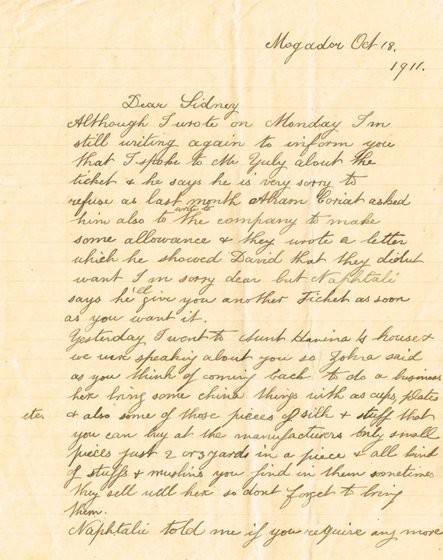 Mogador Oct 18.
1911.
Dear Sidney
Although I wrote on Monday I'm
still writing again to inform you
that I spoke to Mr Yuly about the
ticket & he says he is very sorry to
refuse as last month Abram Coriat asked
him also to write to the company to make
some allowance & they wrote a letter
which he showed David that they didnt
want I'm sorry dear but Naphtali
says he'll give you another Ticket as soon
as you want it.
Yesterday I went to Aunt house &
we were speaking about you so Zohra said
as you think of coming back to do a business
here bring some china things with as cups, plates
etc. & also some of those pieces of silk & stuff that
you can buy at the manufacturers only small
pieces just 2 or 3 yards in a piece & all kind
of stuffs & muslins you find in them sometimes
They sell well here so dont forget to bring
them.
Naphtalie told me if you require any more